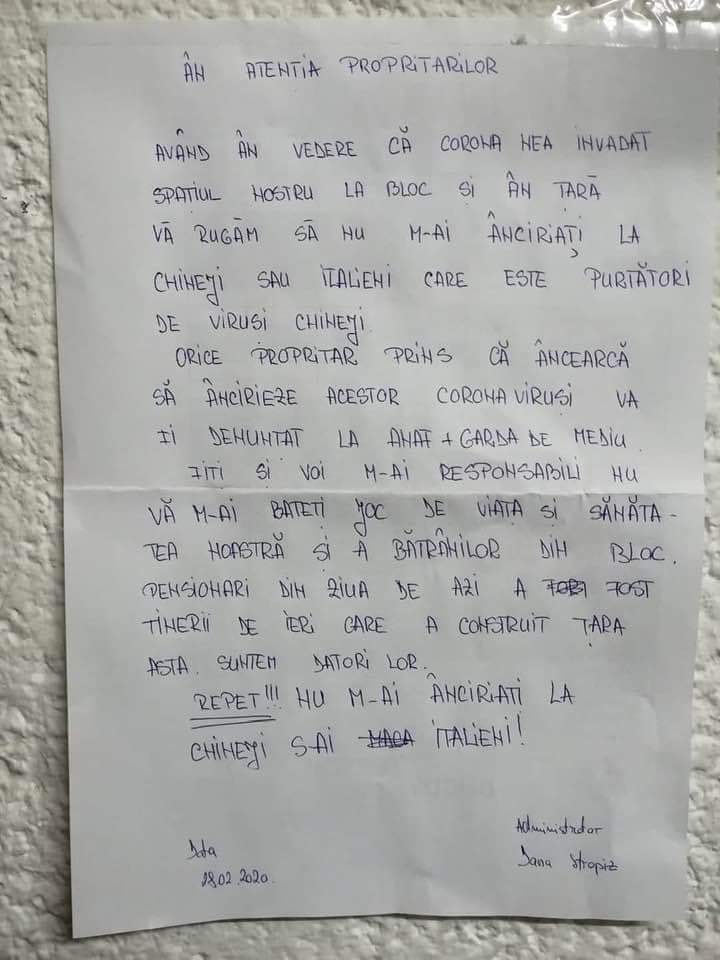 ÂN ATENTIA PROPRITARILOR
AVÂND ÂN VEDERE CĂ CORONA NEA INVADAT
SPATIUL NOSTRU LA BLOC ȘI ÂN ȚARĂ
VĂ RUGĂM SĂ NU M-AI ÂNCIRIAȚI LA
CHINEJI SAU ITALIENI CARE ESTE PURTĂTORI
DE VIRUSI CHINEJI.
ORICE PROPRITAR PRINS CĂ ÂNCEARCĂ
SĂ ÂNCIRIEZE ACESTOR CORONA VIRUSI VA
FI DENUNTAT LA ANAF + GARDA DE MEDIU.
FITI SI VOI M-AI RESPONSABILI NU
VĂ M-AI BATETI JOC DE VIAȚA SI SĂNĂTA-
TEA NOASTRĂ SI A BĂTRÂNILOR DIN BLOC.
PENSIONARI DIN ZIUA DE AZI A FOST
TINERII DE IERI CARE A CONSTRUIT ȚARA
ASTA. SUNTEM DATORI LOR.
REPET!!! NU M-AI ÂNCIRIATI LA
CHINEJI S-AI ITALIENI!
Administrator
Data Dana Stropiz
28.02.2020.